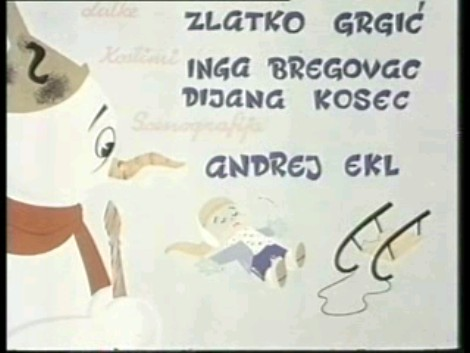 Lutke
ZLATKO GRGIĆ
Kostimi
INGA BREGOVAC
DIJANA KOSEC
Scenografija
ANDREJ EKL